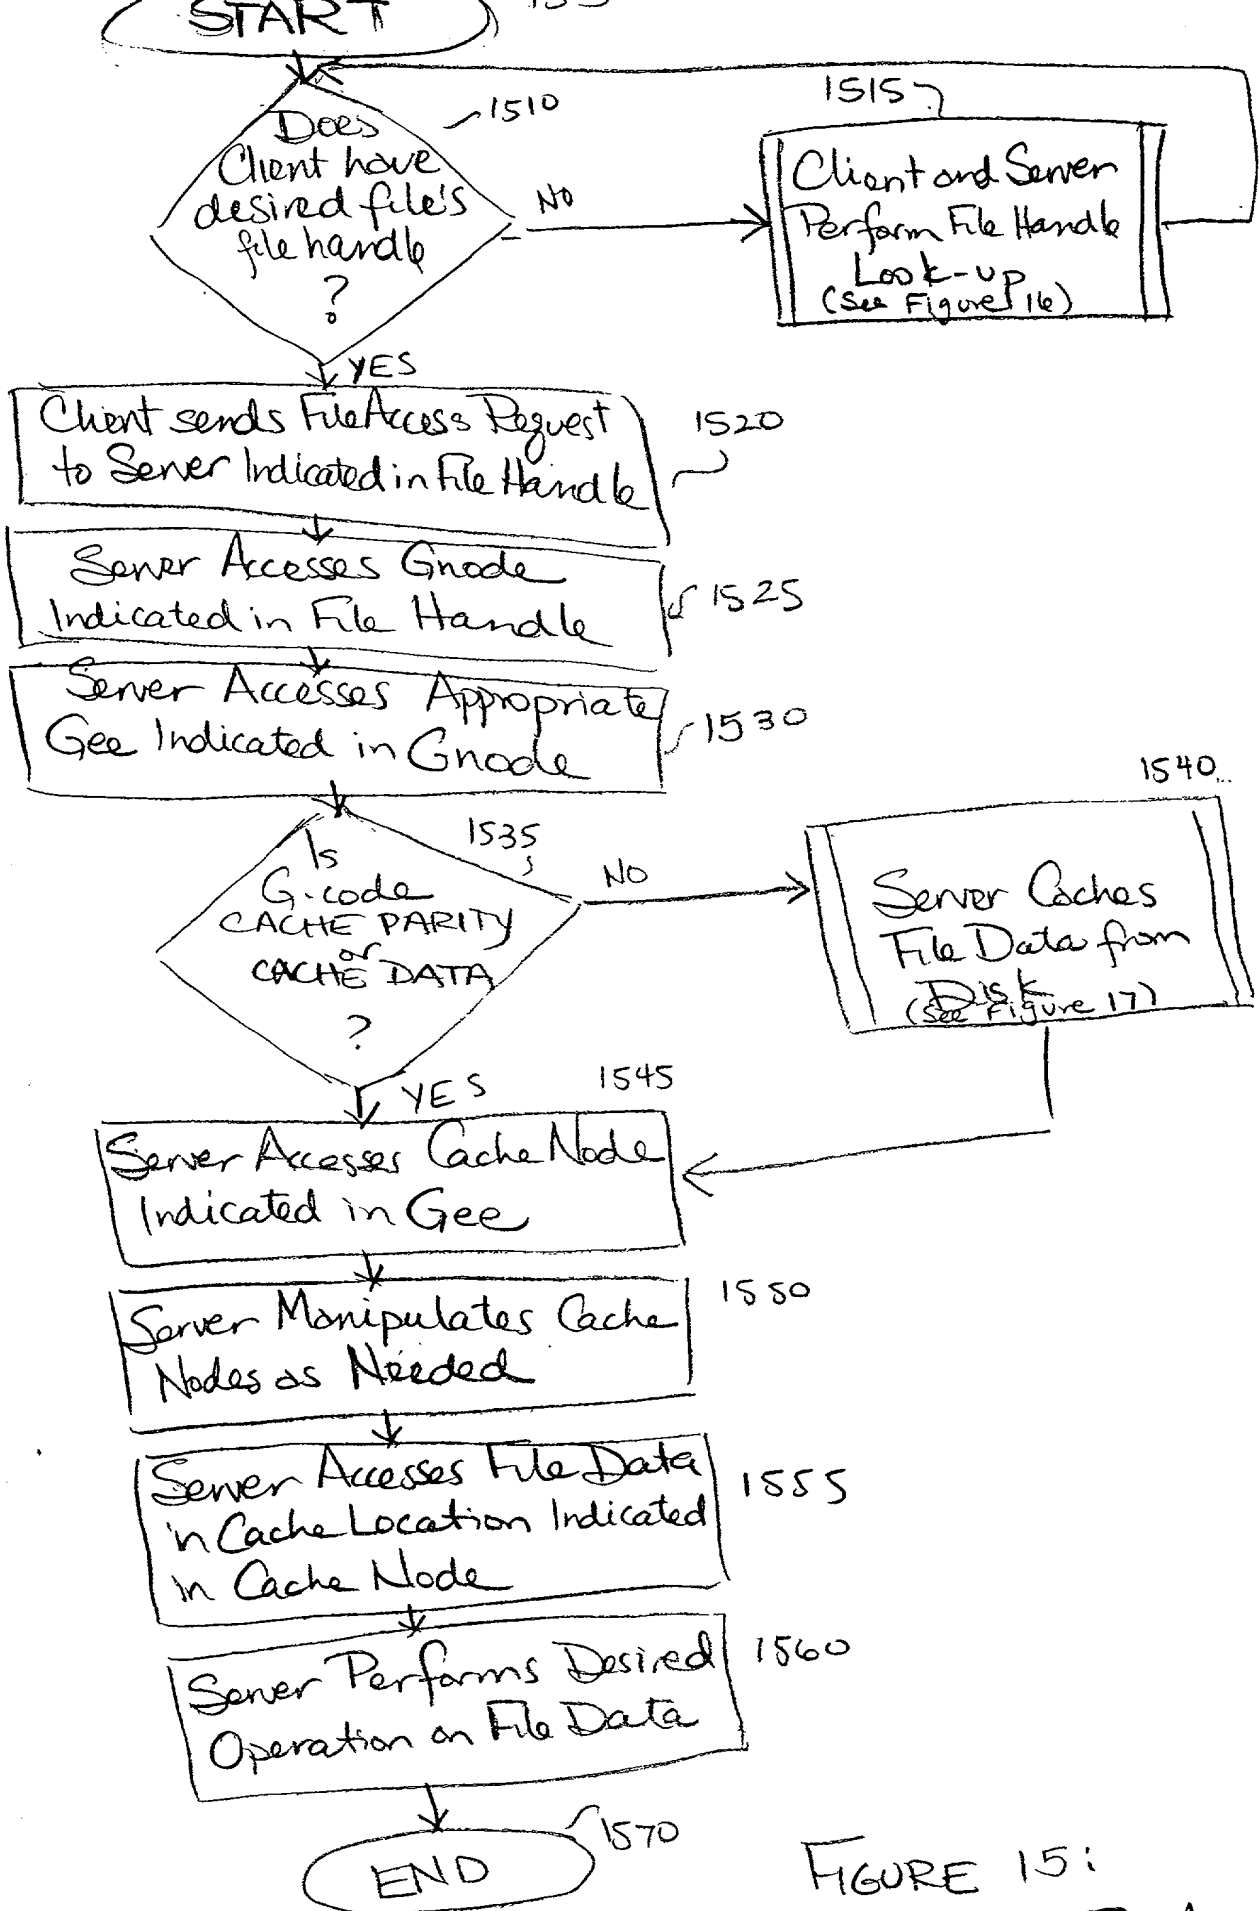 START
1510
Does
Client have
desired file's
file handle
?
NO
1515
Client and Server
Perform File Handle
Look-up
(See Figure 16)
YES
Client sends File Access Request
to Server Indicated in File Handle
1520
Server Accesses Gnode
Indicated in File Handle
1525
Server Accesses Appropriate
Gee Indicated in Gnode
1530
1535
Is
G-code
CACHE PARITY
or
CACHE DATA
?
NO
1540
Server Caches
File Data from
Disk
(See Figure 17)
YES
1545
Server Accesses Cache Node
Indicated in Gee
Server Manipulates Cache
Nodes as Needed
1550
Server Accesses File Data
in Cache Location Indicated
in Cache Node
1555
Server Performs Desired
Operation on File Data
1560
END
1570
FIGURE 15: